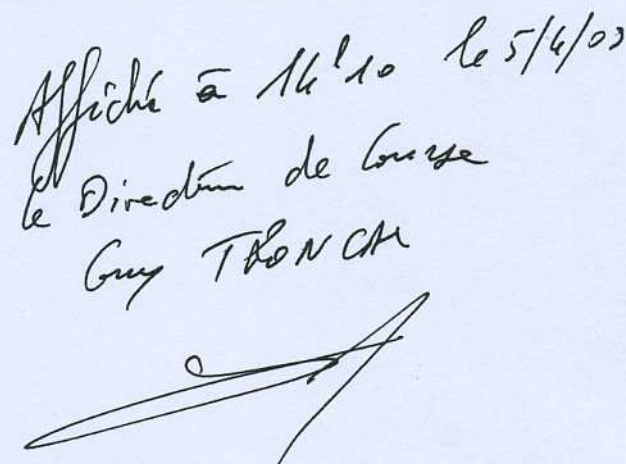 Affiché à 14h10 le 5/4/03
le Directeur de Course
Guy TRONCAL